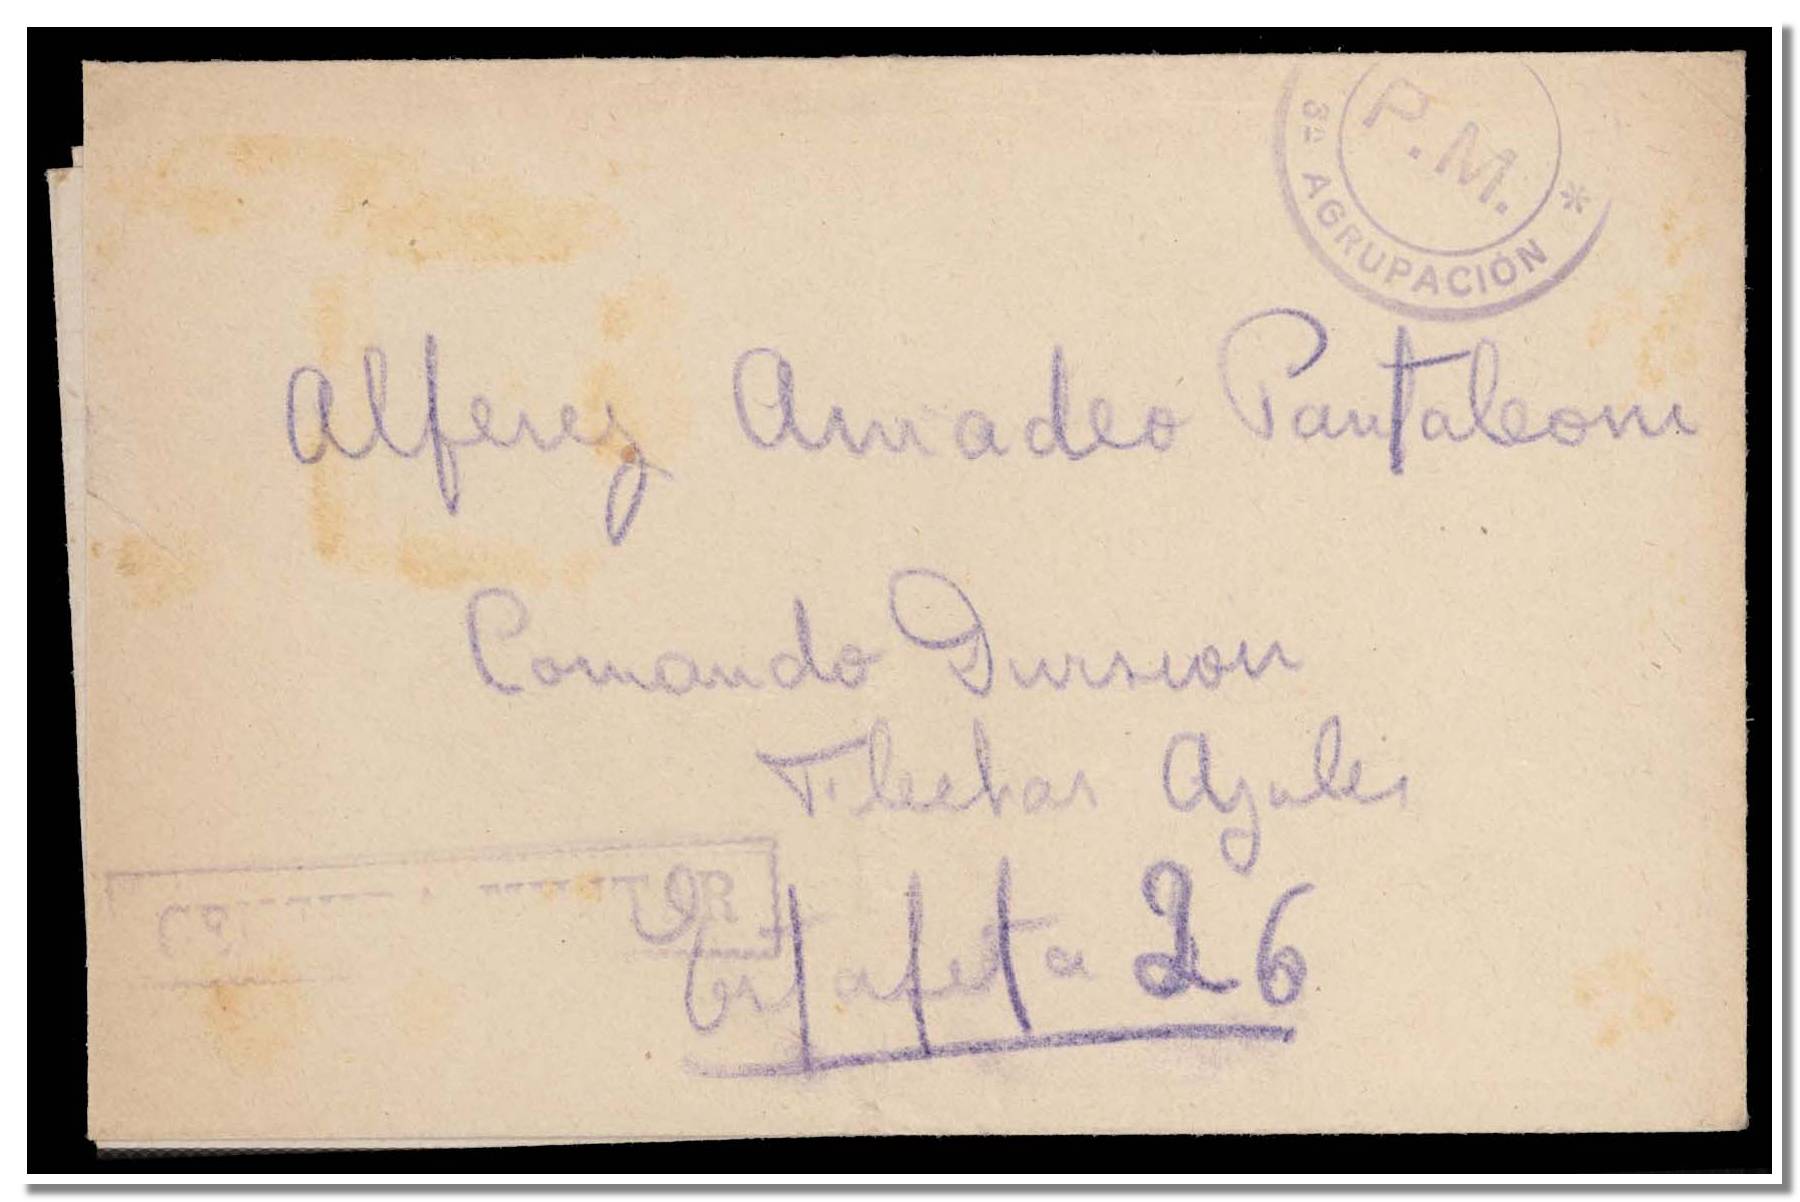 P.M.
3ª AGRUPACIÓN *
Alferez Amadeo Pantaleoni
Comando Division
Flechas Azules
Estafeta 26